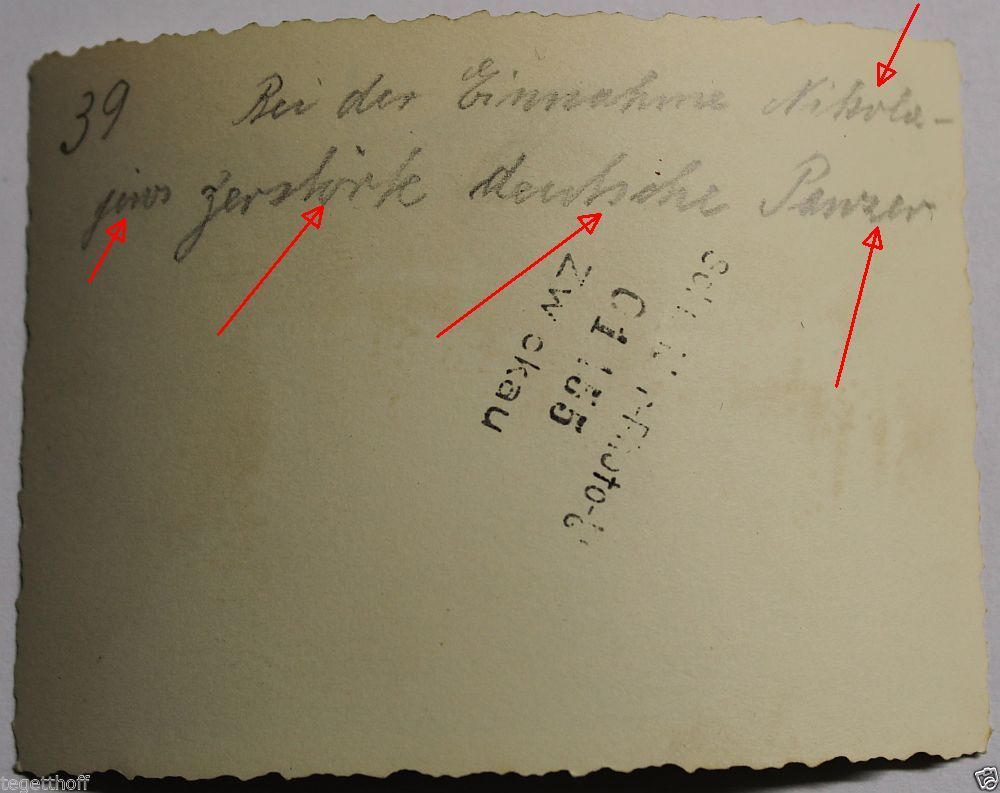 39 Bei der Einnahme Nikola-
jews zerstörte deutsche Panzer
01155
Zwickau
tegetthoff